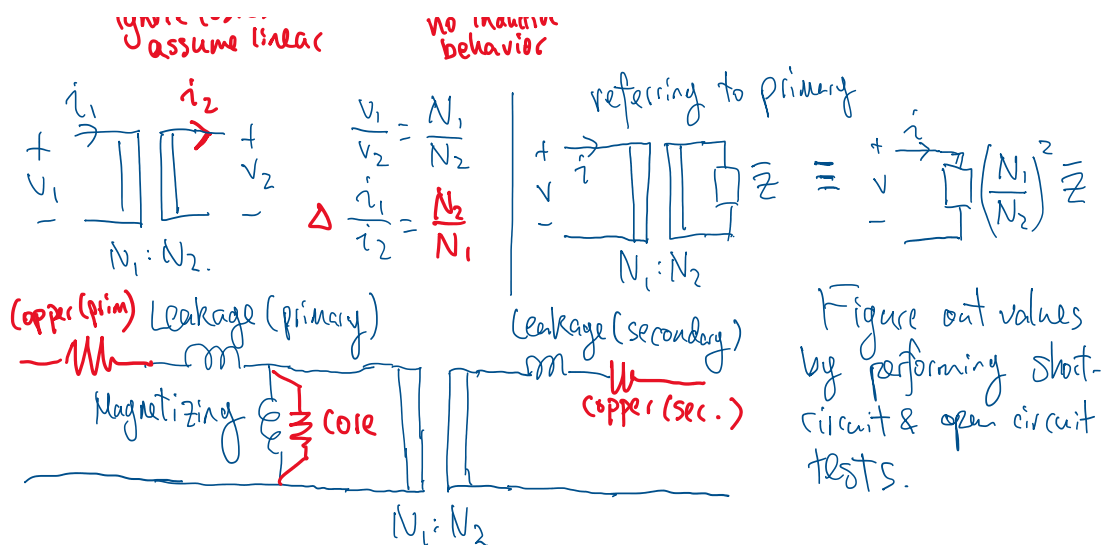 assume linear
no
behavior
i₁
i₂
+
V₁
−
+
V₂
−
N₁:N₂.
V₁/V₂ = N₁/N₂
Δ i₁/i₂ = N₂/N₁
referring to primary
+
V
−
i
Z̄
N₁:N₂
≡
i
+
V
−
(N₁/N₂)² Z̄
Copper(prim)
Leakage(primary)
Magnetizing
Core
N₁:N₂
Leakage(secondary)
Copper(sec.)
Figure out values
by performing short-
circuit & open circuit
tests.